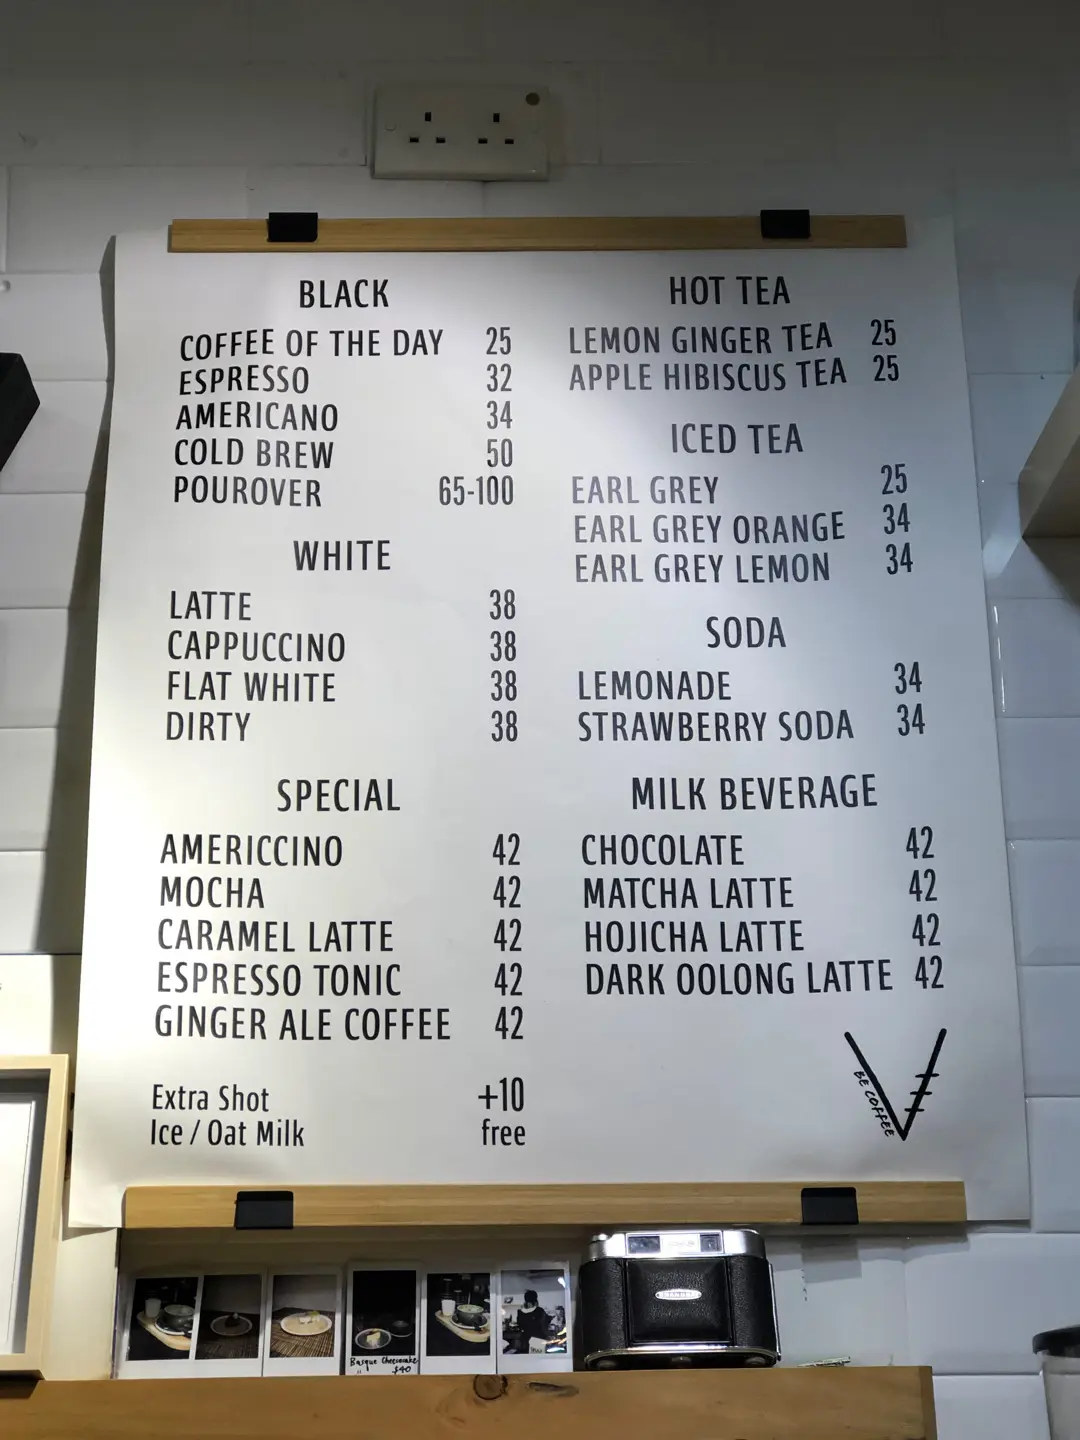 BLACK
COFFEE OF THE DAY 25
ESPRESSO 32
AMERICANO 34
COLD BREW 50
POUROVER 65-100
WHITE
LATTE 38
CAPPUCCINO 38
FLAT WHITE 38
DIRTY 38
SPECIAL
AMERICCINO 42
MOCHA 42
CARAMEL LATTE 42
ESPRESSO TONIC 42
GINGER ALE COFFEE 42
Extra Shot +10
Ice / Oat Milk free
HOT TEA
LEMON GINGER TEA 25
APPLE HIBISCUS TEA 25
ICED TEA
EARL GREY 25
EARL GREY ORANGE 34
EARL GREY LEMON 34
SODA
LEMONADE 34
STRAWBERRY SODA 34
MILK BEVERAGE
CHOCOLATE 42
MATCHA LATTE 42
HOJICHA LATTE 42
DARK OOLONG LATTE 42
BE COFFEE
Basque Cheesecake
$40